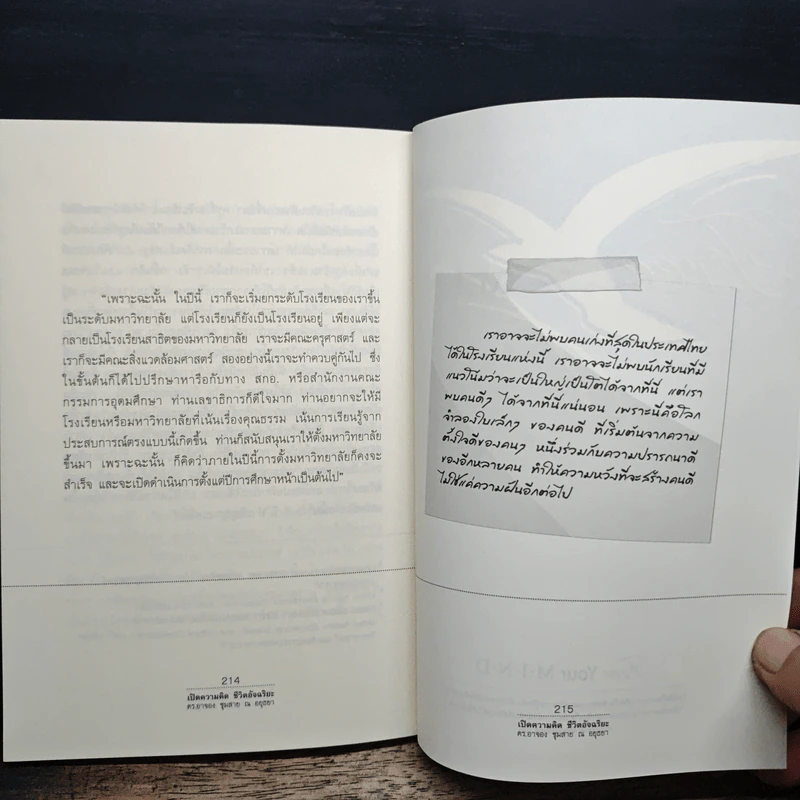 “เพราะฉะนั้น ในปีนี้ เราก็จะเริ่มยกระดับโรงเรียนของเราขึ้น
เป็นระดับมหาวิทยาลัย แต่โรงเรียนก็ยังเป็นโรงเรียนอยู่ เพียงแต่จะ
กลายเป็นโรงเรียนสาธิตของมหาวิทยาลัย เราจะมีคณะครุศาสตร์ และ
เราก็จะมีคณะสิ่งแวดล้อมศาสตร์ สองอย่างนี้เราจะทำควบคู่กันไป ซึ่ง
ในขั้นต้นก็ได้ไปปรึกษาหารือกับทาง สกอ. หรือสำนักงานคณะ
กรรมการอุดมศึกษา ท่านเลขาธิการก็ดีใจมาก ท่านอยากจะให้มี
โรงเรียนหรือมหาวิทยาลัยที่เน้นเรื่องคุณธรรม เน้นการเรียนรู้จาก
ประสบการณ์ตรงแบบนี้เกิดขึ้น ท่านก็สนับสนุนเราให้ตั้งมหาวิทยาลัย
ขึ้นมา เพราะฉะนั้น ก็คิดว่าภายในปีนี้การตั้งมหาวิทยาลัยก็คงจะ
สำเร็จ และจะเปิดดำเนินการตั้งแต่ปีการศึกษาหน้าเป็นต้นไป”
214
เปิดความคิด ชีวิตอัจฉริยะ
ดร.อาจอง ชุมสาย ณ อยุธยา
เราอาจจะไม่พบคนเก่งที่สุดในประเทศไทย
ได้ในโรงเรียนแห่งนี้ เราอาจจะไม่พบนักเรียนที่มี
แนวโน้มว่าจะเป็นใหญ่เป็นโตได้จากที่นี่ แต่เรา
พบคนดีๆ ได้จากที่นี่แน่นอน เพราะนี่คือโลก
จำลองใบเล็กๆ ของคนดี ที่เริ่มต้นจากความ
ตั้งใจดีของคนๆ หนึ่งร่วมกับความปรารถนาดี
ของอีกหลายคน ทำให้ความหวังที่จะสร้างคนดี
ไม่ใช่แค่ความฝันอีกต่อไป
215
เปิดความคิด ชีวิตอัจฉริยะ
ดร.อาจอง ชุมสาย ณ อยุธยา